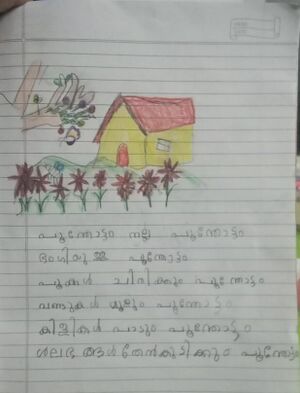 പൂന്തോട്ടം നല്ല പൂന്തോട്ടം
ഭംഗിയുള്ള പൂന്തോട്ടം
പൂക്കൾ വിരിക്കും പൂന്തോട്ടം
വണ്ടുകൾ മൂളും പൂന്തോട്ടം
കിളികൾ പാടും പൂന്തോട്ടം
ശലഭങ്ങൾതേൻകുടിക്കും പൂന്തോട്ടം